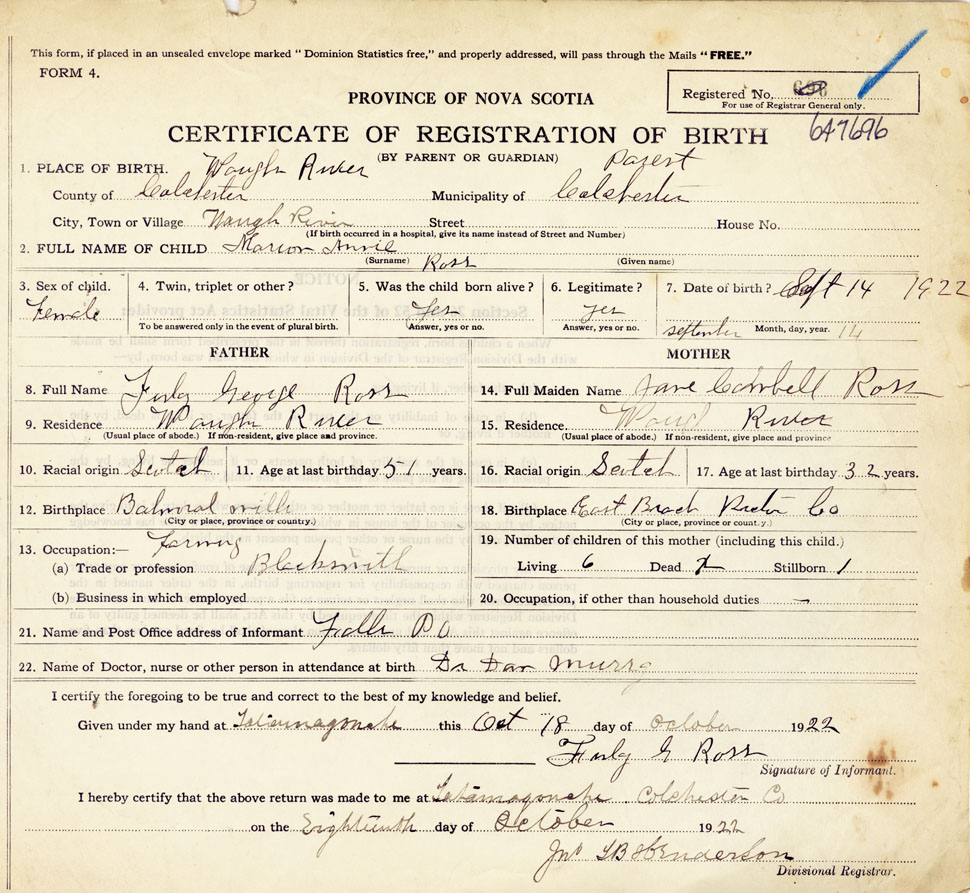 This form, if placed in an unsealed envelope marked "Dominion Statistics free," and properly addressed, will pass through the Mails "FREE."
FORM 4.
Registered No. 696
For use of Registrar General only.
PROVINCE OF NOVA SCOTIA
CERTIFICATE OF REGISTRATION OF BIRTH
647696
(BY PARENT OR GUARDIAN) Parent
1. PLACE OF BIRTH. Waugh River
County of Colchester Municipality of Colchester
City, Town or Village Waugh River Street House No.
(If birth occurred in a hospital, give its name instead of Street and Number)
2. FULL NAME OF CHILD Marion Annie
(Surname) Ross (Given name)
3. Sex of child. 4. Twin, triplet or other? 5. Was the child born alive? 6. Legitimate? 7. Date of birth? Sept 14 1922
Female Yes yes
To be answered only in the event of plural birth. Answer, yes or no. Answer, yes or no. september Month, day, year. 14
FATHER MOTHER
8. Full Name Finly George Ross 14. Full Maiden Name Jane Ross
9. Residence Waugh River 15. Residence. Waugh River
(Usual place of abode.) If non-resident, give place and province. (Usual place of abode.) If non-resident, give place and province
10. Racial origin Scotch 11. Age at last birthday 51 years. 16. Racial origin Scotch 17. Age at last birthday 32 years.
12. Birthplace Balmoral mills 18. Birthplace East Co
(City or place, province or country.) (City or place, province or county.)
13. Occupation:— Farming 19. Number of children of this mother (including this child.)
(a) Trade or profession Blacksmith Living 6 Dead Stillborn 1
(b) Business in which employed 20. Occupation, if other than household duties —
21. Name and Post Office address of Informant Falls P O
22. Name of Doctor, nurse or other person in attendance at birth Dr Dan Murray
I certify the foregoing to be true and correct to the best of my knowledge and belief.
Given under my hand at Tatamagouche this Oct 18 day of October 1922
Finly G Ross
Signature of Informant.
I hereby certify that the above return was made to me at Tatamagouche Colchester Co
on the Eighteenth day of October 1922
Jno Henderson
Divisional Registrar.